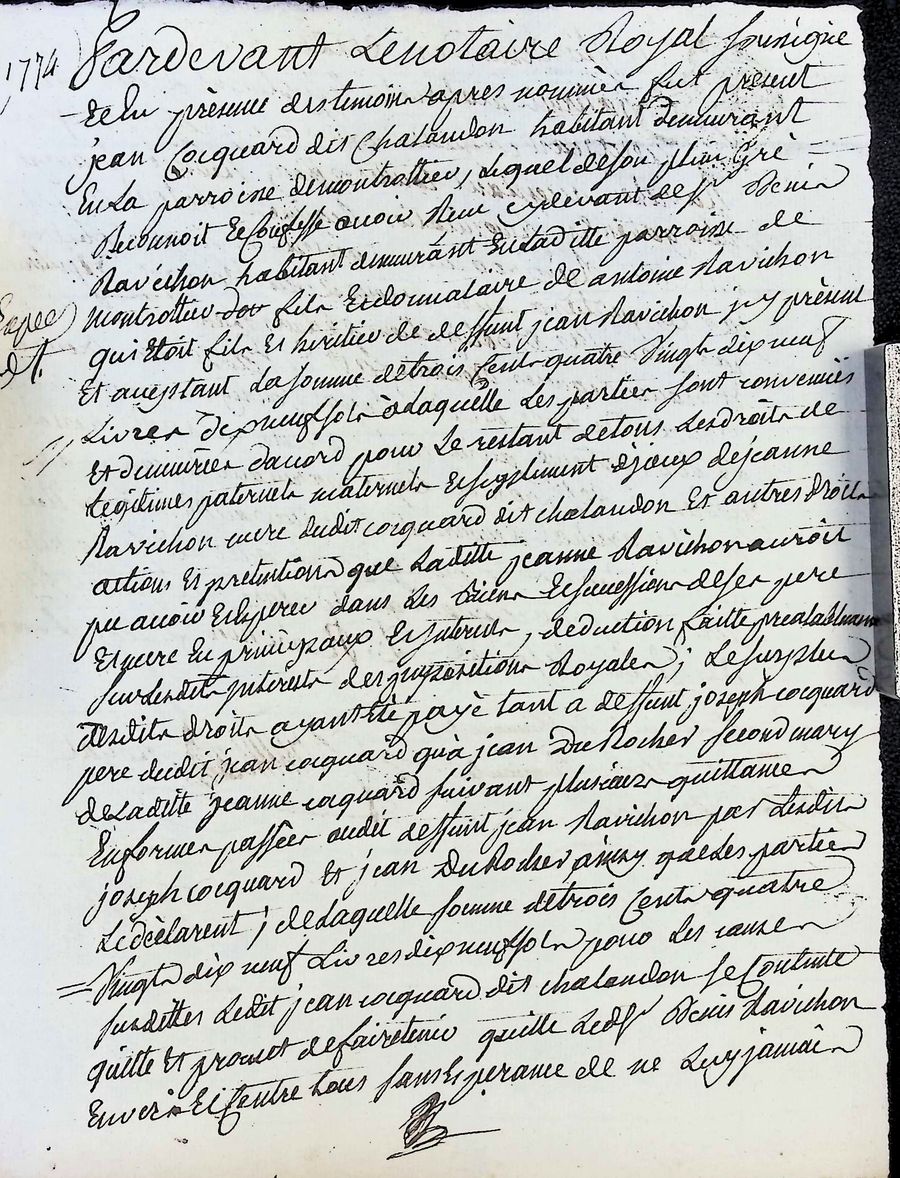 1774
Pardevant Le notaire Royal soussigné
Et En presence des temoins apres nommés fut present
jean Cocquard dit Chalandon habitant demeurant
En La parroisse de montrottier, Lequel de son plein Gré =
Reconnoit Et Confesse avoir Recu cy devant de Sr Denis
Ravichon habitant demeurant En Laditte parroisse de
montrottier fils Et donnataire de antoine Ravichon
qui Etoit fils Et heritier de deffunt jean Ravichon icy présent
Et aceptant La somme de trois Cents quatre Vingts dix neuf
Livres dix neuf sols à Laquelle Les parties sont convenües
Et demurées d'acord pour Le restant de tous Les droits de
Legitimes paternels maternels Et suplement d'jceux de jeanne
Ravichon mere dudit cocquard dit chalandon Et autres droits
actions Et pretentions que Laditte jeanne Ravichon auroit
pu avoir Et Esperer dans Les Biens Et successions de ses pere
Et mere En principaux Et jnterets, deduction faitte prealablement
sur Lesdits jnterets des jmpositions Royales; Le surplus
desdits droits ayant Eté payé tant a deffunt joseph cocquard
pere dudit jean cocquard qu'à jean Du Rocher second mary
de Laditte jeanne cocquard suivant plusieurs quittances
En formes passées audit deffunt jean Ravichon par Lesdits
joseph cocquard Et jean Du Rocher ainsy que Les parties
Le déclarent; de Laquelle somme de trois Cents quatre
= Vingts dix neuf Livres dix neuf sols pour Les causes
susdittes Ledit jean cocquard dit chalandon se Contente
quitte Et promet de faire tenir quitte Ledt Sr Denis Ravichon
Envers Et Contre tous sans Esperance de ne Luy jamais